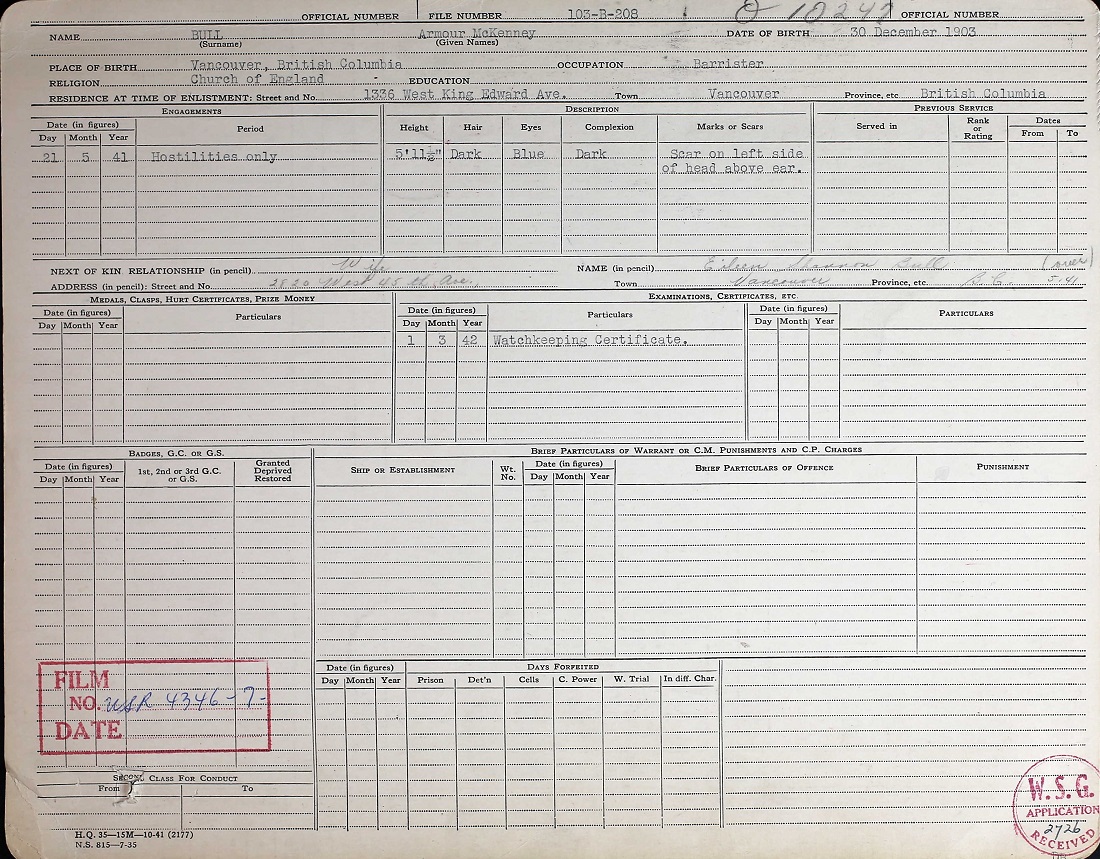 OFFICIAL NUMBER FILE NUMBER 103-B-208 O 10247 OFFICIAL NUMBER
NAME BULL Armour McKenney DATE OF BIRTH 30 December 1903
(Surname) (Given Names)
PLACE OF BIRTH Vancouver, British Columbia OCCUPATION Barrister
RELIGION Church of England EDUCATION
RESIDENCE AT TIME OF ENLISTMENT: Street and No. 1336 West King Edward Ave. Town Vancouver Province, etc British Columbia
ENGAGEMENTS DESCRIPTION PREVIOUS SERVICE
Date (in figures) Period Height Hair Eyes Complexion Marks or Scars Served in Rank or Rating Dates
Day Month Year From To
21 5 41 Hostilities only 5'11½" Dark Blue Dark Scar on left side
of head above ear.
NEXT OF KIN RELATIONSHIP (in pencil) Wife NAME (in pencil) Eileen Bull (over)
ADDRESS (in pencil): Street and No. West 45th Ave. Town Vancouver Province, etc. B.C. 5-41
MEDALS, CLASPS, HURT CERTIFICATES, PRIZE MONEY EXAMINATIONS, CERTIFICATES, ETC.
Date (in figures) Particulars Date (in figures) Particulars Date (in figures) PARTICULARS
Day Month Year Day Month Year Day Month Year
1 3 42 Watchkeeping Certificate.
BADGES, G.C. OR G.S. BRIEF PARTICULARS OF WARRANT OR C.M. PUNISHMENTS AND C.P. CHARGES
Date (in figures) 1st, 2nd or 3rd G.C. or G.S. Granted Deprived Restored SHIP OR ESTABLISHMENT Wt. No. Date (in figures) BRIEF PARTICULARS OF OFFENCE PUNISHMENT
Day Month Year Day Month Year
Date (in figures) DAYS FORFEITED
Day Month Year Prison Det'n Cells C. Power W. Trial In diff. Char.
FILM
NO. USR 4346-7-
DATE
SECOND CLASS FOR CONDUCT
From To
W.S.G.
APPLICATION
2726
RECEIVED
H.Q. 35—15M—10-41 (2177)
N.S. 815—7-35